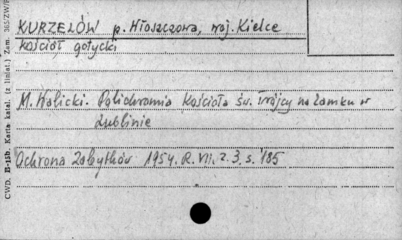 KURZELÓW p. Włoszczowa, woj. Kielce
kościół gotycki
M. Walicki. Polichromia Kościoła św. Trójcy na Zamku w
Lublinie
Ochrona Zabytków 1954. R. VII, z. 3, s. 185
CWD. B-11b. Karta katal. (z liniat.) Zam. 365/ZW/